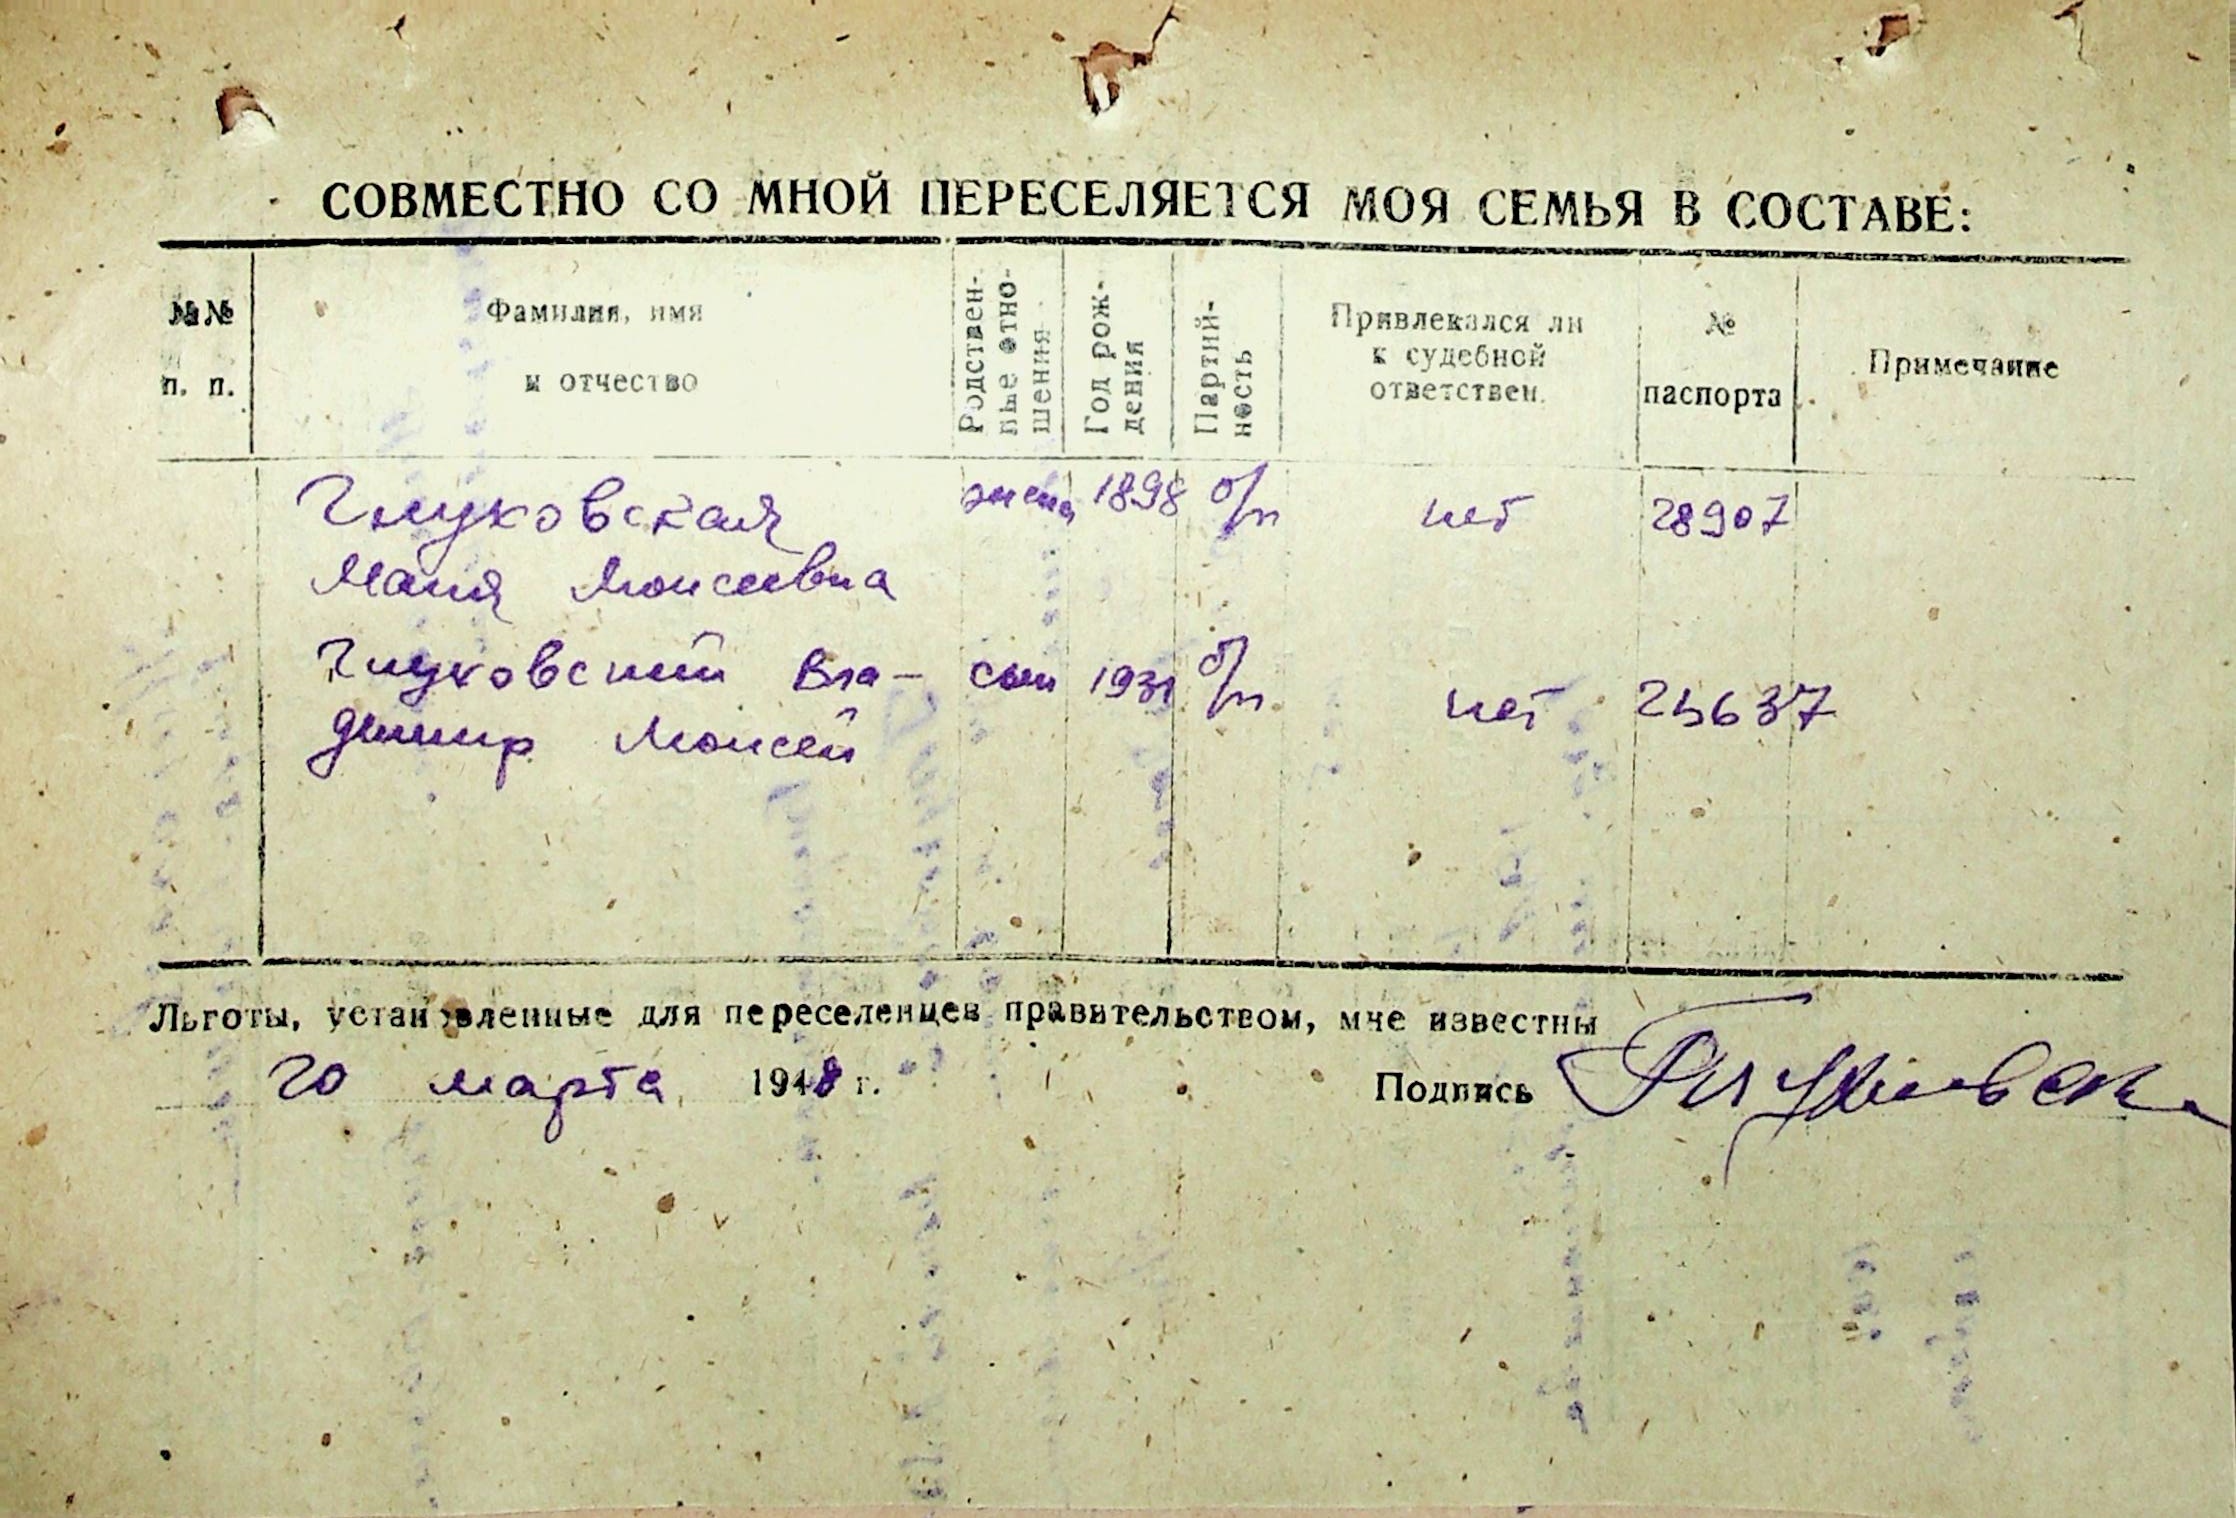 СОВМЕСТНО СО МНОЙ ПЕРЕСЕЛЯЕТСЯ МОЯ СЕМЬЯ В СОСТАВЕ:
№№ п. п.
Фамилия, имя и отчество
Родствен-ные отно-шения
Год рож-дения
Партий-ность
Привлекался ли к судебной ответствен.
№ паспорта
Примечание
Глуховская жена 1898 б/п нет 28907
Маня Моисеевна
Глуховский Вла- сын 1931 б/п нет 25637
димир Моисей
Льготы, установленные для переселенцев правительством, мне известны
20 марта 1948 г. Подпись